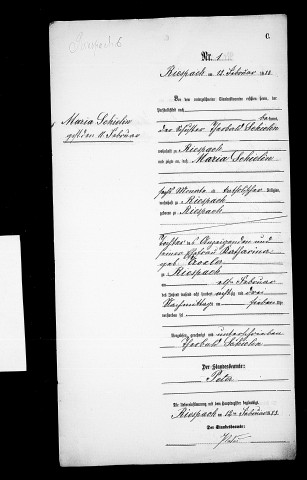 C.
Nr. 1
Riespach am 12. Februar 18
Vor dem unterzeichneten Standesbeamten erschien heute, der
Persönlichkeit nach
kannt,
der Schuster Theobald Schielin
wohnhaft zu Riespach
und zeigte an, daß Maria Schielin
Maria Schielin
gest. den 11. Februar
sechs Monate alt, katholischer Religion,
wohnhaft zu Riespach
geboren zu Riespach
Tochter des Anzeigenden und
seiner Ehefrau Katharina
geb.
zu Riespach
am elften Februar
des Jahres tausend acht hundert achtzig und drei
Nachmittags um sieben Uhr
verstorben sei
Vorgelesen, genehmigt und unterschrieben
Theobald Schielin
Der Standesbeamte.
Peter
Die Uebereinstimmung mit dem Hauptregister beglaubigt.
Riespach am 12ten Februar 1883
Der Standesbeamte.
Peter